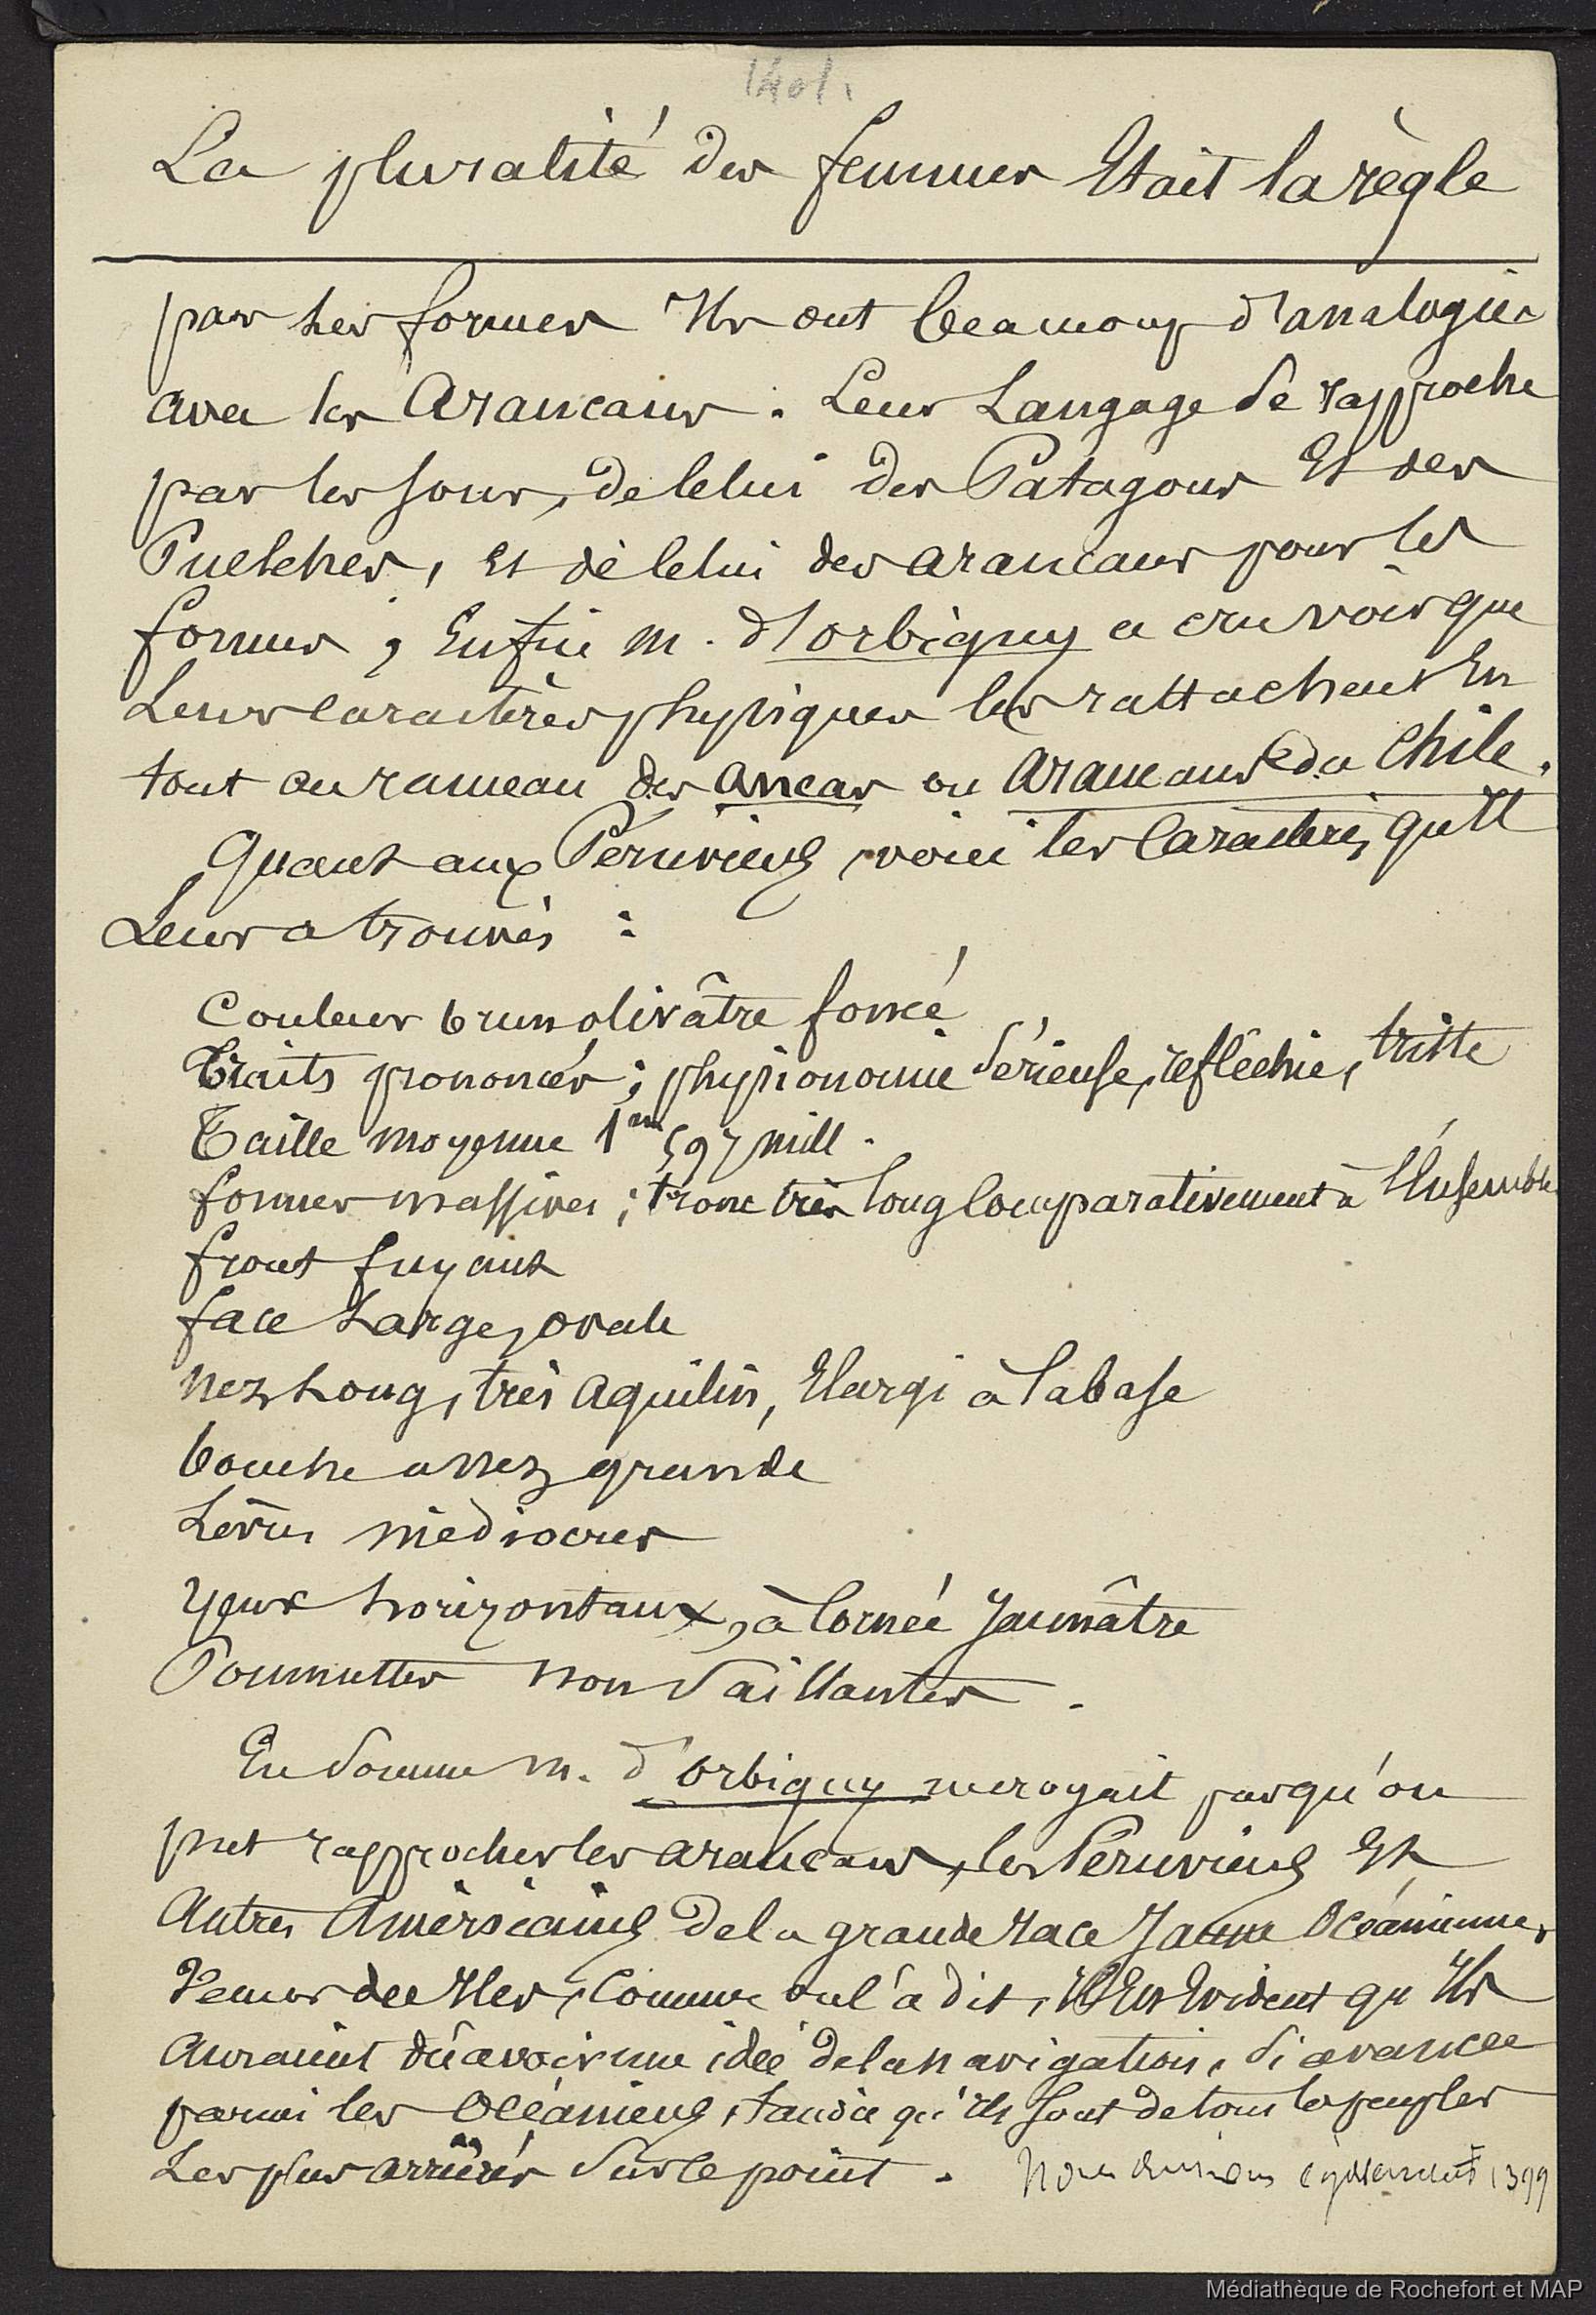 1401.
La pluralité des femmes Etait la règle
par les formes Ils ont beaucoup d'analogie
avec les Araucans. Leur Langage se rapproche
par les sons, de celui des Patagons Et des
Puelches, Et de celui des araucans pour les
formes ; Enfin m. d'orbigny a cru voir que
Leurs caractères physiques les rattachent En
tout au rameau des ancas ou Araucans du Chile.
Quant aux Péruviens, voici les Caractères qu'Il
Leur a trouvés :
Couleur brun olivâtre foncé
Traits prononcés ; physionomie Sérieuse, réfléchie, triste
Taille moyenne 1m 597 mill.
formes massives ; tronc très long Comparativement à l'Ensemble
front fuyant
face Large, ovale
Nez Long, très Aquilin, Elargi à la base
bouche assez grande
Lèvres médiocres
yeux horizontaux, à Cornée Jaunâtre
Pommettes non Saillantes.
En Somme m. d'orbigny ne croyait pas qu'on
put rapprocher les araucans, les Péruviens Et
Autres Américains de la grande race Jaune Océanienne,
Venus des Iles, Comme on l'a dit, Il Est Evident qu'Ils
Auraient dû avoir une idée de la navigation, Si avancée
parmi les Océaniens, tandis qu'ils sont de tous les peuples
Les plus arriérés Sur ce point. Nous 1399
Médiathèque de Rochefort et MAP